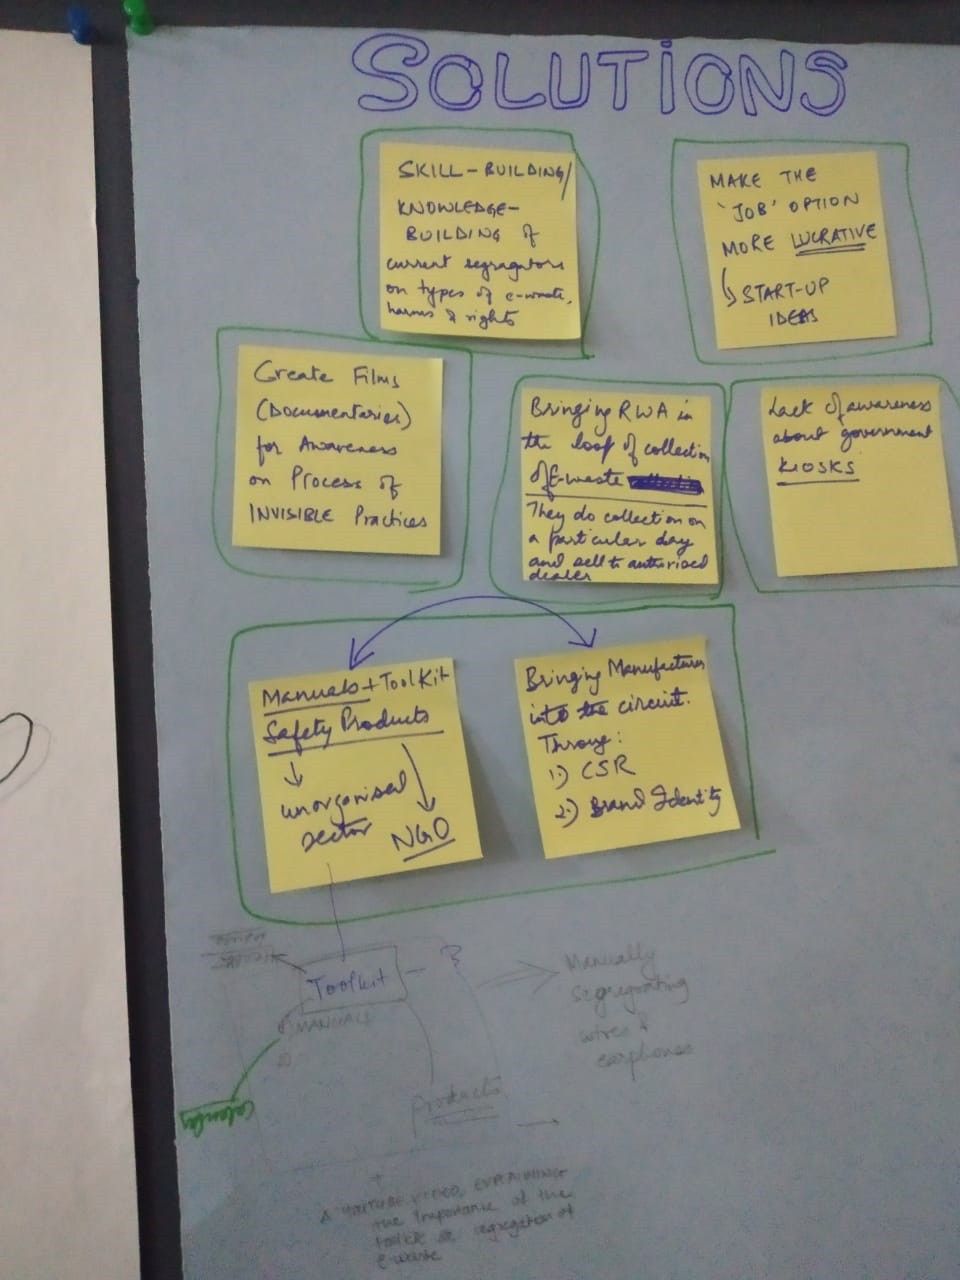 SOLUTIONS
SKILL-BUILDING/
KNOWLEDGE-
BUILDING of
current segragators
on types of e-waste,
harms & rights
MAKE THE
'JOB' OPTION
MORE LUCRATIVE
START-UP
IDEAS
Create Films
(Documentaries)
for Awareness
on Process of
INVISIBLE Practices
Bringing RWA in
the loop of collection
of E-waste
They do collection on
a particular day
and sell to authorised
dealer
Lack of awareness
about government
KIOSKS
Manuals + Toolkit
Safety Products
unorganised
sector
NGO
Bringing Manufacturers
into the circuit.
Through:
1.) CSR
2.) Brand Identity
Toolkit
MANUALS
Manually
Segregating
wires &
earphones
Calendar
Products
A YOUTUBE VIDEO EXPLAINING
the Importance of the
toolkit segregation of
e-waste